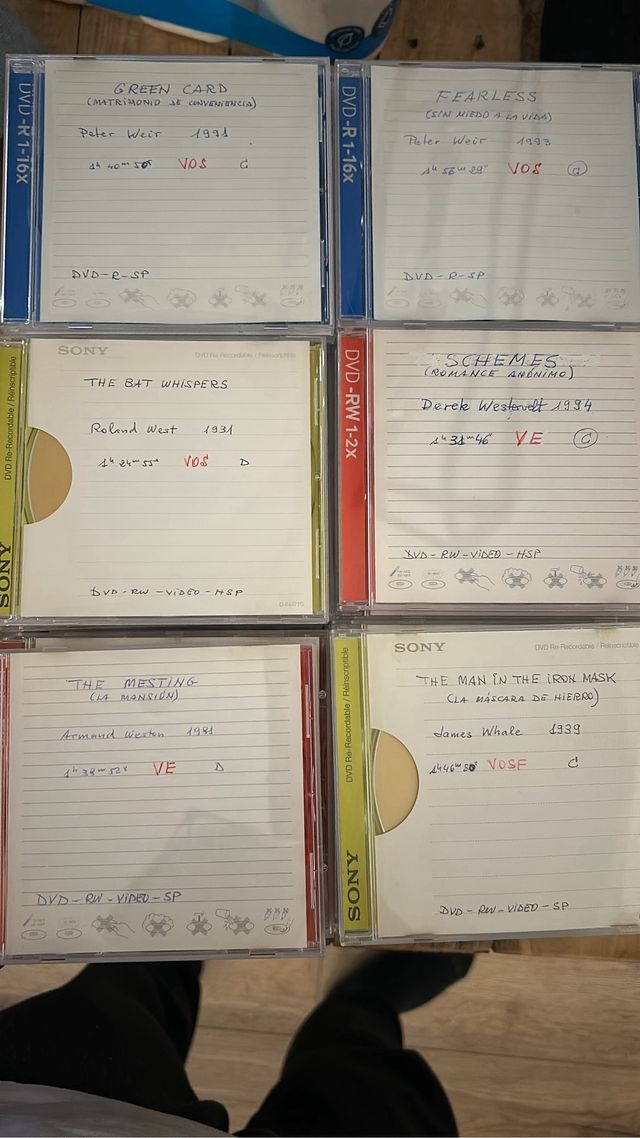 DVD-R 1-16x
GREEN CARD
(MATRIMONIO DE CONVENIENCIA)
Peter Weir 1991
VOS C
DVD-R-SP
DVD-R 1-16x
FEARLESS
(SIN MIEDO A LA VIDA)
Peter Weir 1993
1h 56m 29s VOS C
DVD-R-SP
DVD Re-Recordable / Réinscriptible
SONY
SONY
DVD Re-Recordable / Réinscriptible
THE BAT WHISPERS
Roland West 1931
1h 24m 55s VOS D
DVD-RW-VIDEO-HSP
DVD-RW 1-2x
SCHEMES
(ROMANCE ANÓNIMO)
Derek Westervelt 1994
1h 31m 46s VE C
DVD-RW-VIDEO-HSP
THE MESTING
(LA MANSIÓN)
Armand Weston 1981
1h 38m 52s VE D
DVD-RW-VIDEO-SP
DVD Re-Recordable / Réinscriptible
SONY
SONY
DVD Re-Recordable / Réinscriptible
THE MAN IN THE IRON MASK
(LA MÁSCARA DE HIERRO)
James Whale 1939
VOSE C
DVD-RW-VIDEO-SP